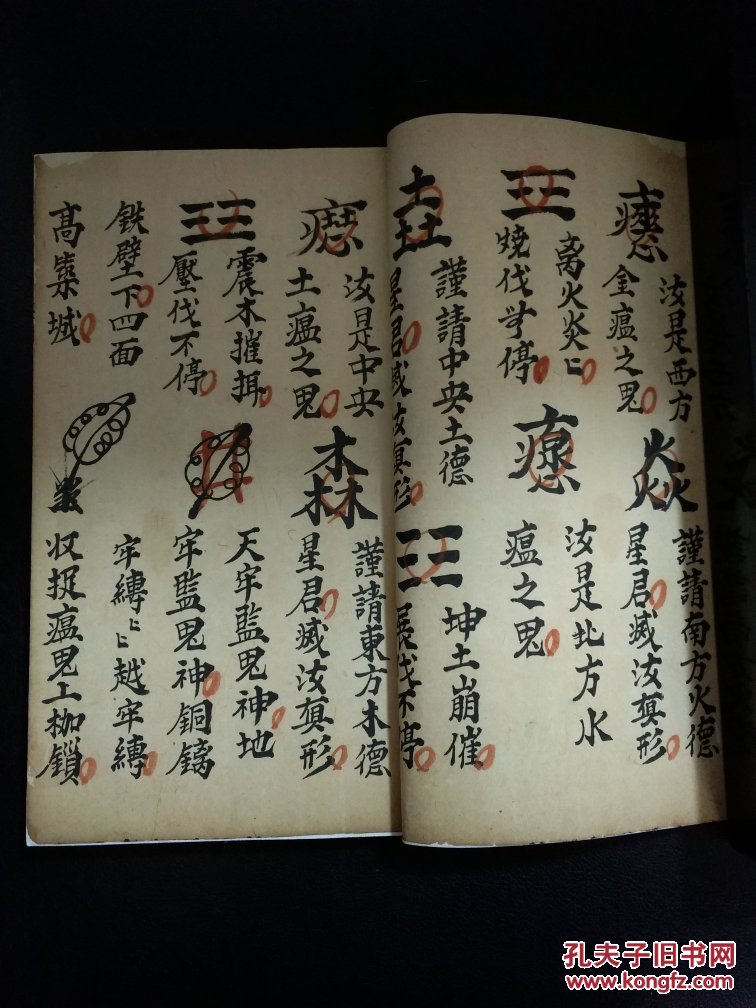 汝是西方
金瘟之鬼
焱
謹請南方火德
星君滅汝真形
三三
离火炎々
燒伐不停
汝是北方水
瘟之鬼
垚
謹請中央土德
星君滅汝真形
三三
坤土崩催
展伐不停
汝是中央
土瘟之鬼
森
謹請東方木德
星君滅汝真形
三三
震木摧
壓伐不停
天牢監鬼神地
牢監鬼神銅鑄
铁壁下四面
高築城
牢縛々々越牢縛
收捉瘟鬼上枷鎖
孔夫子旧书网
www.kongfz.com